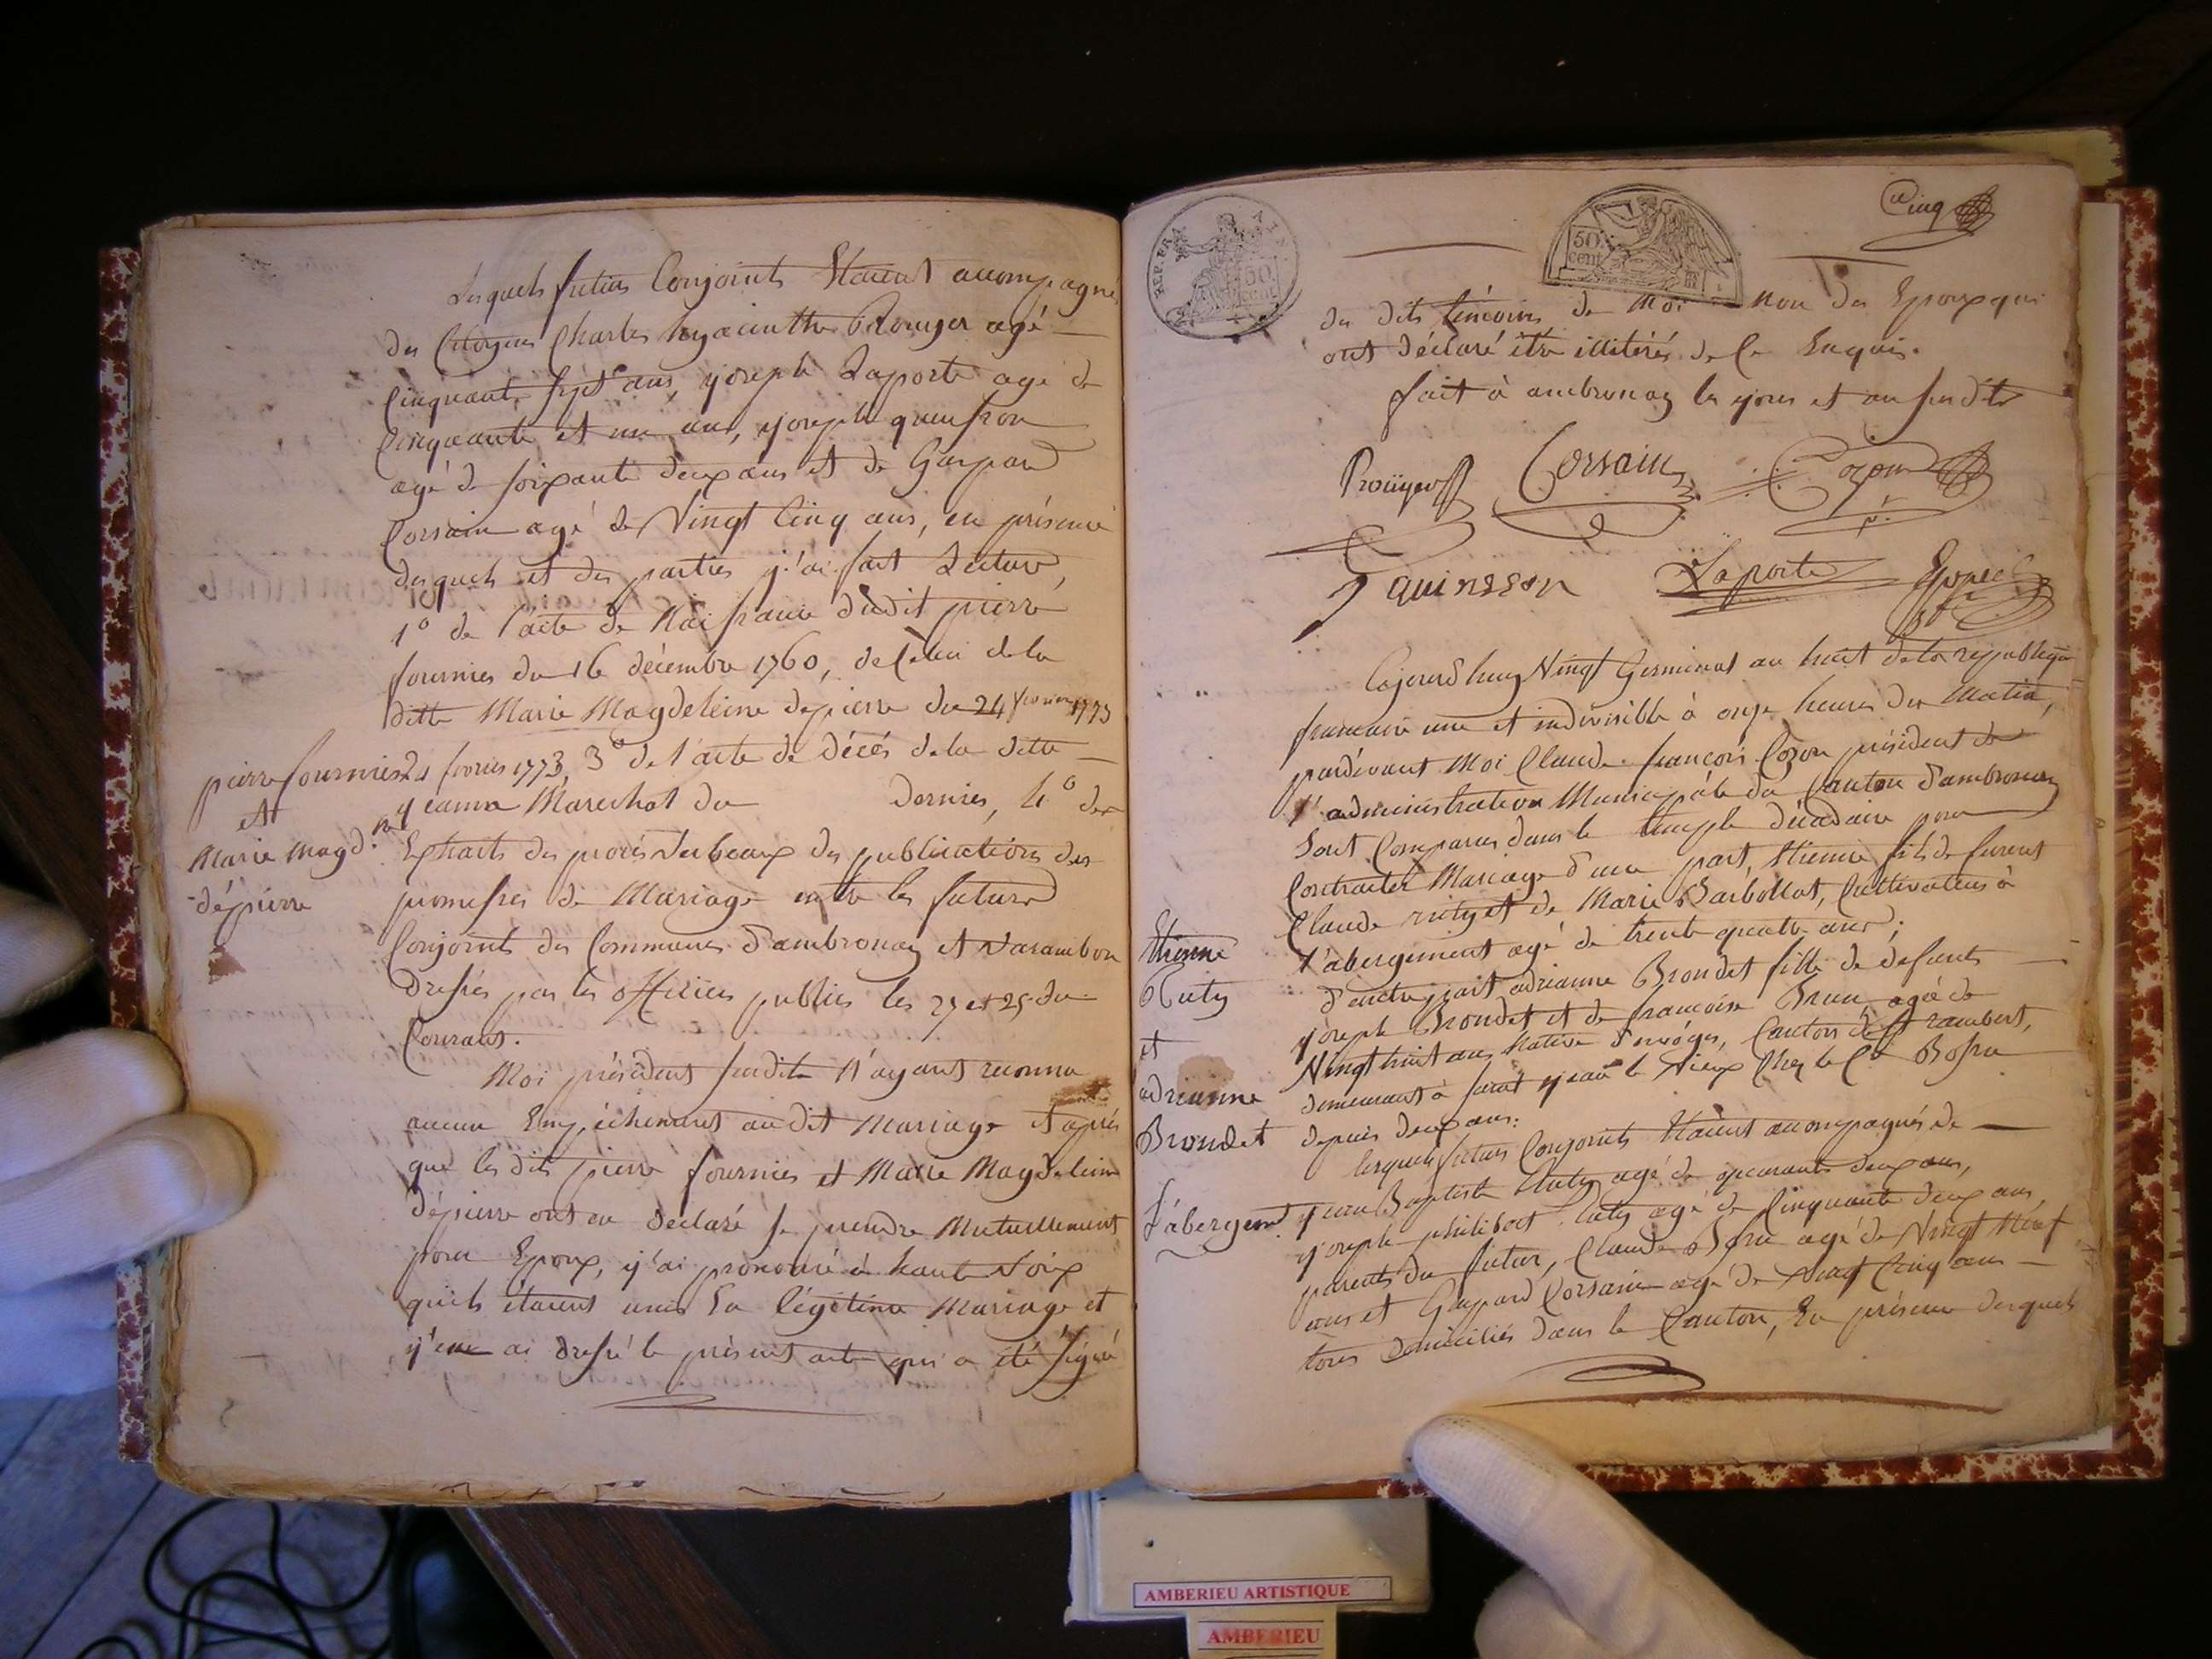 Lesquels futurs Conjoints Etaient accompagnés
des Citoyens Charles hyacinthe Prouyer agé
Cinquante sept ans, joseph Laporte agé de
Cinquante et un ans, joseph quinsson
agé de soixante deux ans et de Gaspard
Corsain agé de Vingt Cinq ans, en présence
desquels et des parties j'ai fait Lecture,
1o de l'acte de Naissance dudit pierre
fournier du 16 décembre 1760, de Celui de la
ditte Marie Magdeleine depierre du 24 fevrier 1773
24 fevrier 1773, 3o de l'acte de décés de la ditte
jeanne Marechal du dernier, 4o des
Extraits des procés Verbeaux des publications des
promesses de Mariage entre les futurs
Conjoints des Communes d'ambronay et Varambon
dressés par les officiers publics les 27 et 25 du
Courant.
Moi président susdit N'ayant reconnu
aucun Empéchement audit Mariage et aprés
que les dits pierre fournier et Marie Magdeleine
dépierre ont eu declaré se prendre Mutuellement
pour Epoux, j'ai prononcé à haute Voix
quils étaient unis En légitime Mariage et
j'en ai dressé le présent acte qui a été signé
pierre fournier
et
Marie Magd.ne
dépierre
Cinq
REP. FRA
50 cent
50 cent
des dits témoins de Moi Non des Epoux qui
ont déclaré être illitérés de Ce Enquis.
fait à ambronay les jour et an susdits
Prouyer Corsain Cozon
J quinsson Laporte
Cejourd'huy Vingt Germinal an huit de la république
francaise une et indivisible à onze heures du Matin,
pardevant Moi Claude françois Cozon président de
l'administration Municipale du Canton d'ambronay
Sont Comparus dans le temple décadaire pour
Contracter Mariage d'une part, Etienne fils de furent
Claude ruty et de Marie Barbollat, Cultivateur à
l'abergement agé de trente quatre ans;
d'autre part adrianne Brondet fille de defunts
joseph Brondet et de francoise Brun, agée de
Vingt huit ans Native d'evoges, Canton de St rambert,
demeurant à saint jean le Vieux Chez le Cen Bossu
depuis deux ans:
lesquels futurs Conjoints Etaient accompagnés de
jean Baptiste Ruty agé de quarante deux ans,
joseph philibert Ruty agé de Cinquante deux ans,
parents du futur, Claude Bossu agé de Vingt Neuf
ans et Gaspard Corsain agé de Vingt Cinq ans
tous domiciliés dans le Canton, En présence desquels
Etienne
Ruty
et
adrianne
Brondet
L'abergemt.
AMBERIEU ARTISTIQUE
AMBERIEU